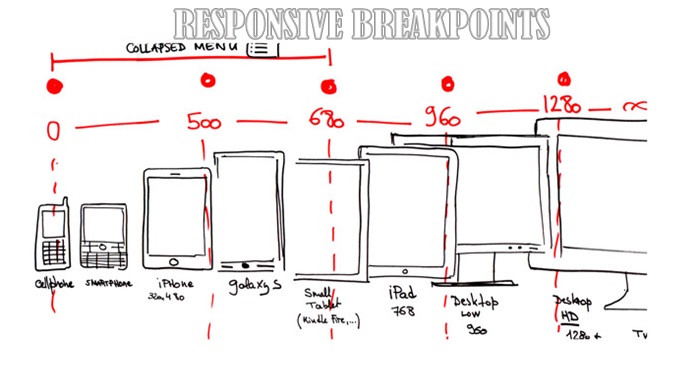 RESPONSIVE BREAKPOINTS
COLLAPSED MENU
0 500 680 960 1280 ∞
Cellphone
SMARTPHONE
iPHone
320,480
galaxy S
Small
Tablet
(Kindle Fire,...)
iPad
768
Desktop
LOW
960
Desktop
HD
1280+
TV